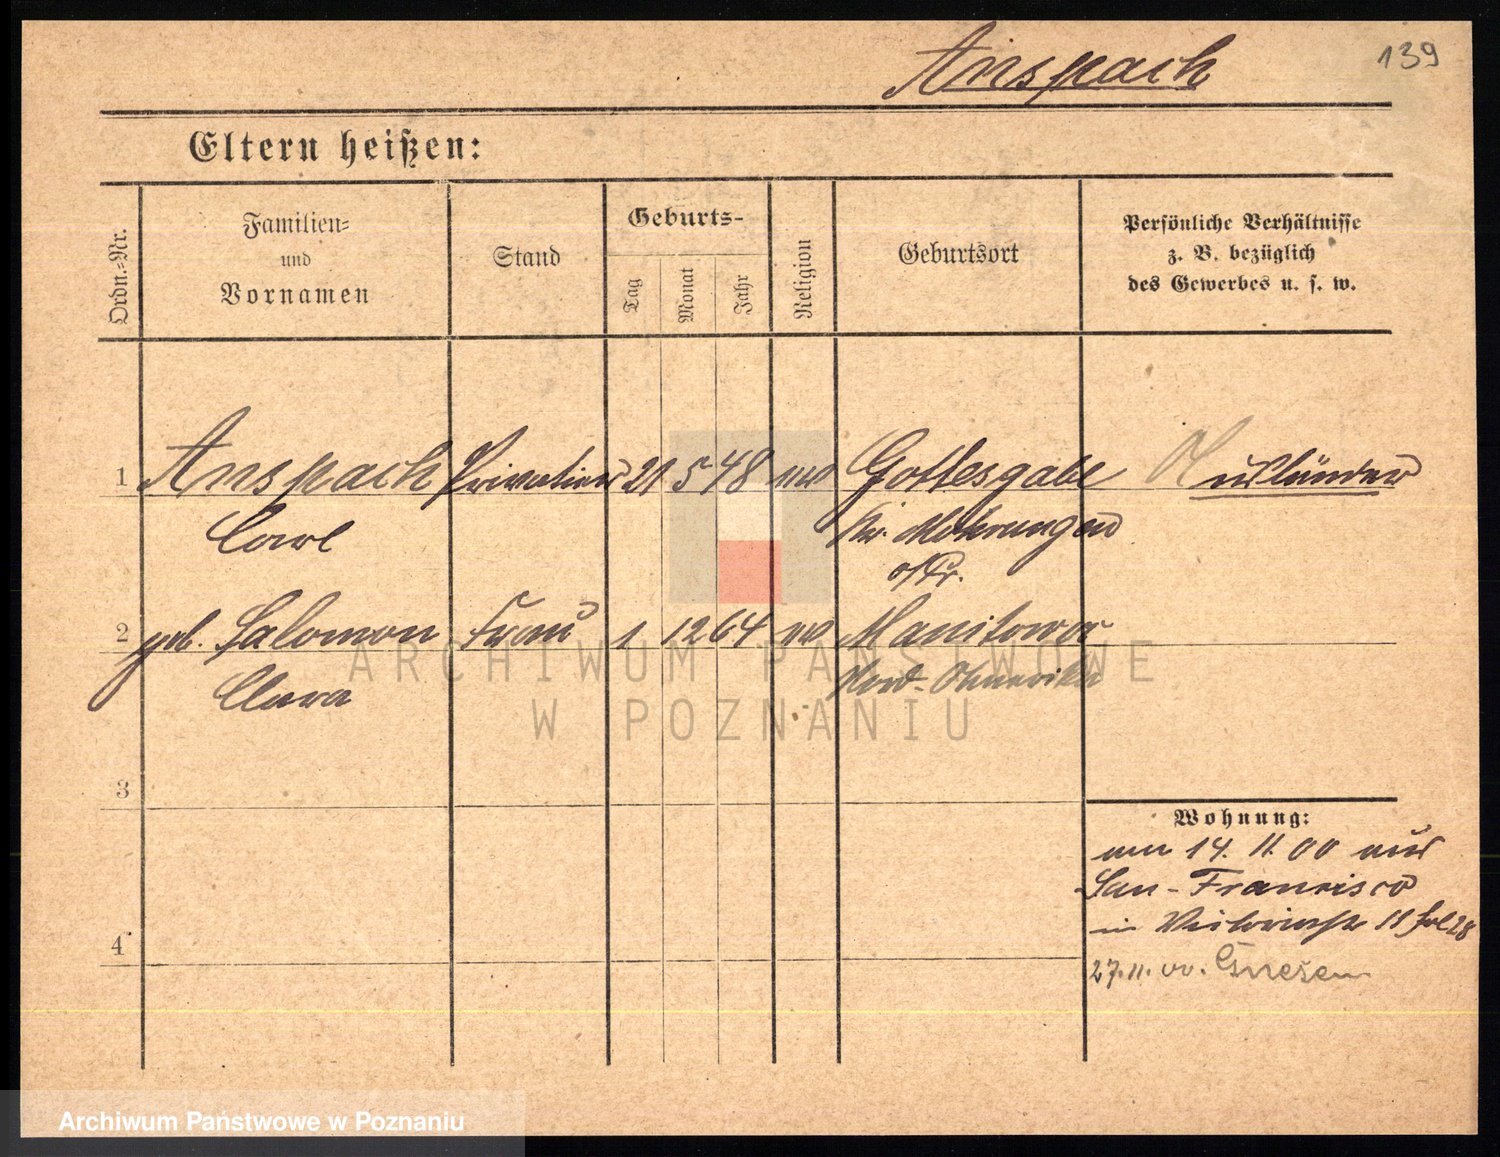 Anspach
139
Eltern heißen:
Ordn.-Nr.
Familien-
und
Vornamen
Stand
Geburts-
Tag
Monat
Jahr
Religion
Geburtsort
Persönliche Verhältnisse
z. B. bezüglich
des Gewerbes u. s. w.
1 Anspach Privatier 21 5 48 Gottesgabe Ausländer
Carl Kr. Mohrungen
o/Pr.
2 geb. Salomon Frau 1 12 64 Manitowoc
Clara Nord-Amerika
3
Wohnung:
am 14. 11. 00 aus
San-Francisco
in Victoriastr 11
4
27. 11. 00. Gnesen
ARCHIWUM PAŃSTWOWE
W POZNANIU
Archiwum Państwowe w Poznaniu